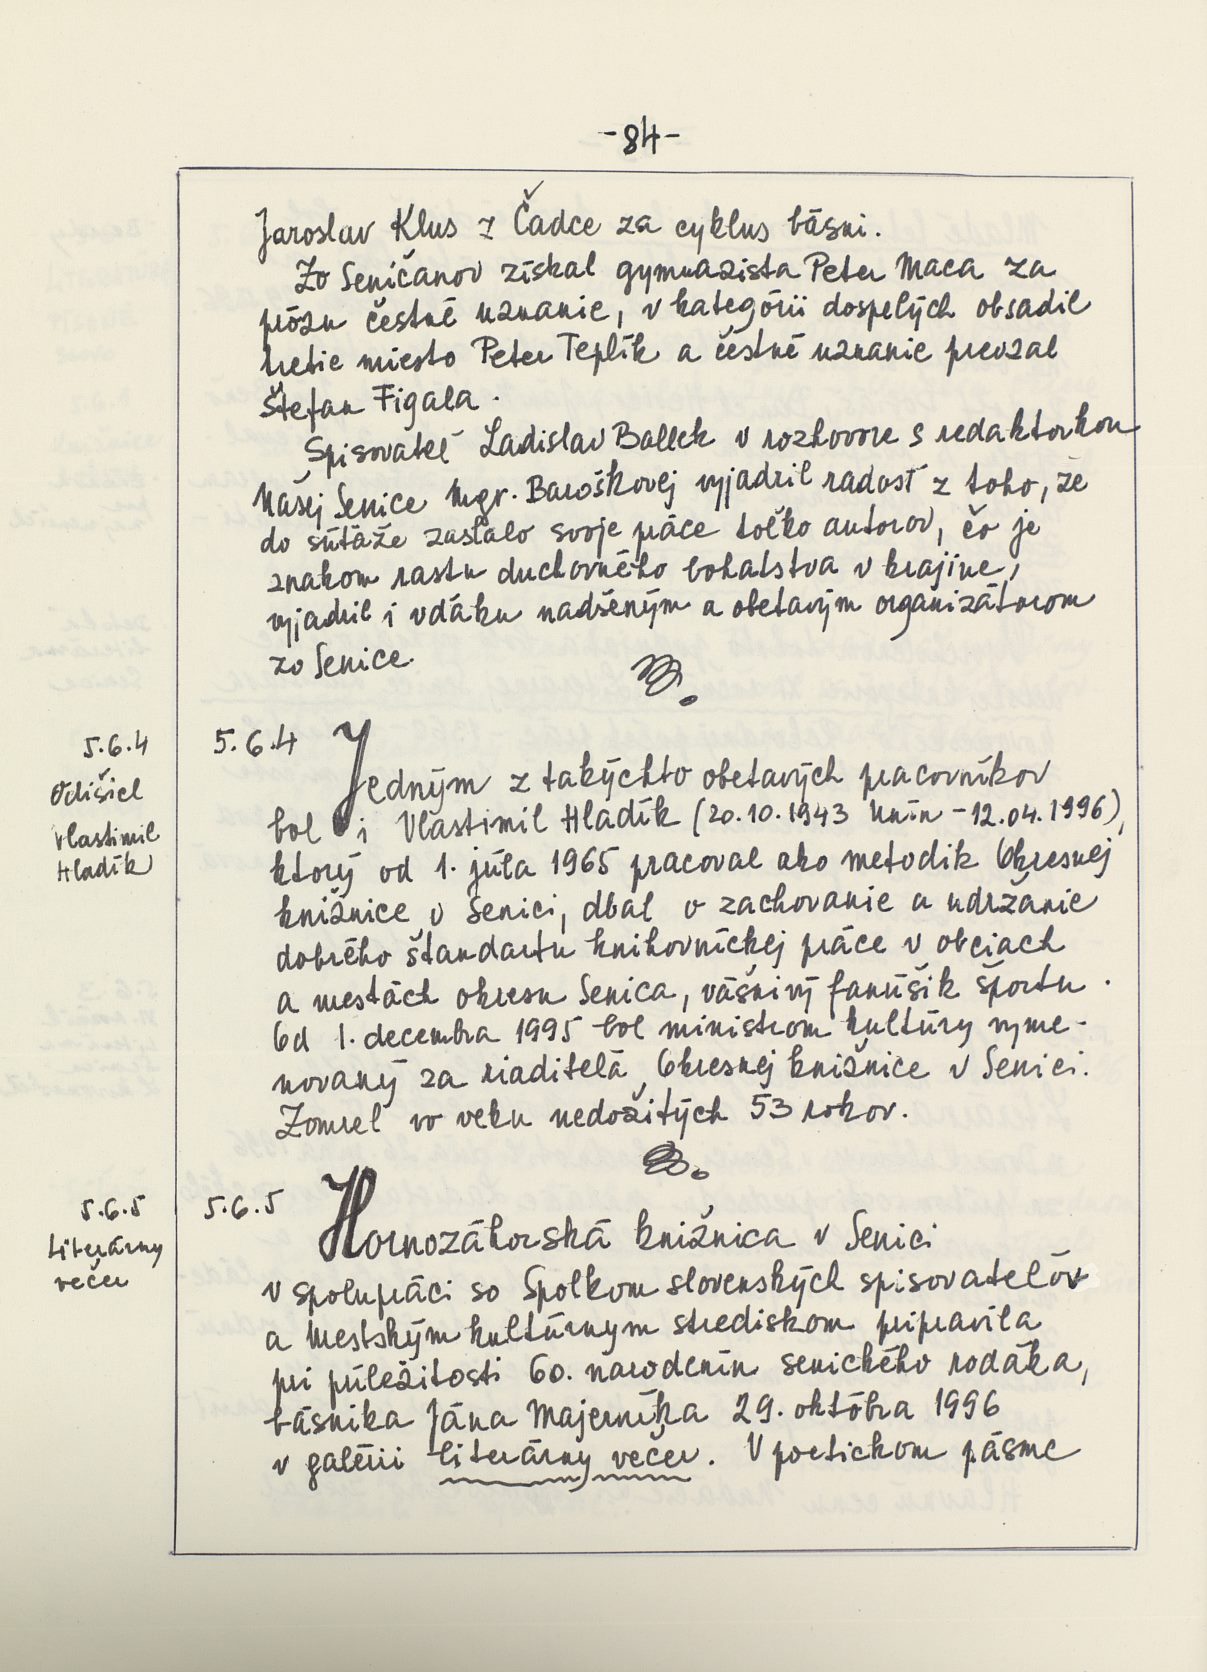 -84-
Jaroslav Klus z Čadce za cyklus básni.
Zo Seničanov získal gymnazista Peter Maca za
prózu čestné uznanie, v kategórii dospelých obsadil
tretie miesto Peter Teplík a čestné uznanie prevzal
Štefan Figala.
Spisovateľ Ladislav Ballek v rozhovore s redaktorkou
Našej Senice Mgr. Baroškovej vyjadril radosť z toho, že
do súťaže zaslalo svoje práce toľko autorov, čo je
znakom rastu duchovného bohatstva v krajine,
vyjadril i vďaku nadšeným a obetavým organizátorom
zo Senice.
5.6.4
Odišiel
Vlastimil
Hladík
5.6.4 Jedným z takýchto obetavých pracovníkov
bol i Vlastimil Hladík (20.10.1943 Unín - 12.04.1996),
ktorý od 1. júla 1965 pracoval ako metodik Okresnej
knižnice v Senici, dbal o zachovanie a udržanie
dobrého štandartu knihovníckej práce v obciach
a mestách okresu Senica, vášnivý fanúšik športu.
Od 1. decembra 1995 bol ministrom kultúry vyme-
novaný za riaditeľa Okresnej knižnice v Senici.
Zomrel vo veku nedožitých 53 rokov.
5.6.5
Literárny
večer
5.6.5 Hornozáhorská knižnica v Senici
v spolupráci so Spolkom slovenských spisovateľov
a Mestským kultúrnym strediskom pripravila
pri príležitosti 60. narodenín senického rodáka,
básnika Jána Majerníka 29. októbra 1996
v galérii literárny večer. V poetickom pásme